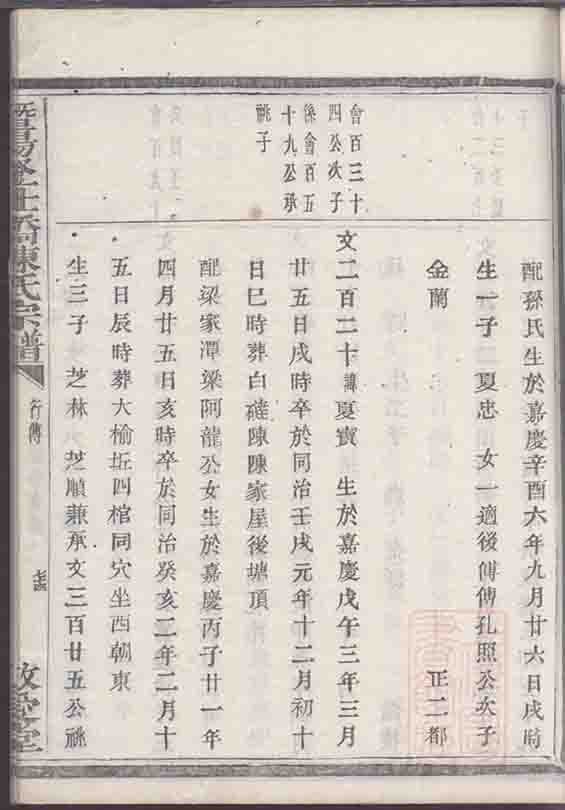 配孫氏生於嘉慶辛酉六年九月廿六日戌時
生一子 夏忠 女一適後傅傅孔照公次子
金蘭 正二都
會百三十
四公次子
後會百五
十九公承
祧子
文二百二十諱夏寶 生於嘉慶戊午三年三月
廿五日戌時卒於同治壬戌元年十二月初十
日巳時葬白碰陳陳家屋後塘頂
配梁家潭梁阿龍公女生於嘉慶丙子廿一年
四月廿五日亥時卒於同治癸亥二年二月十
五日辰時葬大榆坵四棺同穴坐西朝東
生三子 芝林 芝順兼承文三百廿五公祧
暨陽 橋陳氏宗譜
行傳
敬愛堂